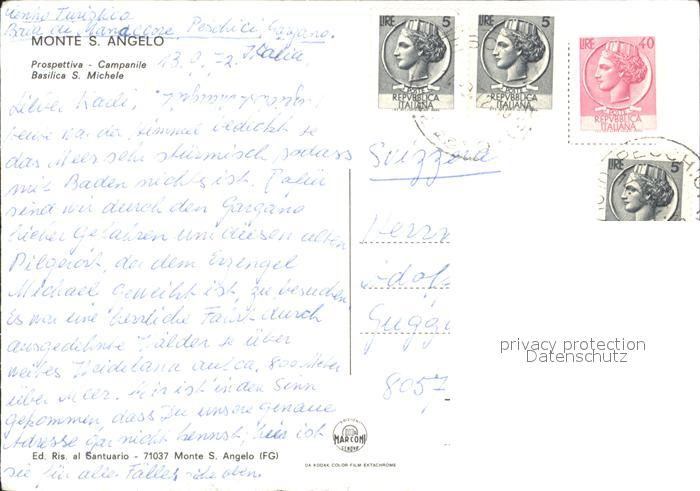 Centro Turistico
Baia di Manaccore, Peschici, Gargano.
MONTE S. ANGELO
Italia,
Prospettiva - Campanile
Basilica S. Michele
13.9.72.
Lieber
heute war der Himmel bedeckt
das Meer sehr stürmisch, sodass
mit Baden nichts ist. Dafür
sind wir durch den Gargano
hieher gefahren um diesen alten
Pilgerort, der dem Erzengel
Michael geweiht ist, zu besuchen.
Es war eine herrliche Fahrt durch
ausgedehnte Wälder so über
weites Heideland auf ca. 800 Meter
über Meer. Mir ist in den Sinn
gekommen, dass Du unsere genaue
Adresse gar nicht kennst, hier ist
Ed. Ris. al Santuario - 71037 Monte S. Angelo (FG)
sie für alle Fälle, siehe oben.
LIRE 5
POSTE
REPVBBLICA
ITALIANA
LIRE 5
POSTE
REPVBBLICA
ITALIANA
LIRE 40
POSTE
REPVBBLICA
ITALIANA
LIRE 5
Svizzera
Herrn
8057
privacy protection
Datenschutz
MARCONI
GENOVA
DA KODAK COLOR FILM EKTACHROME